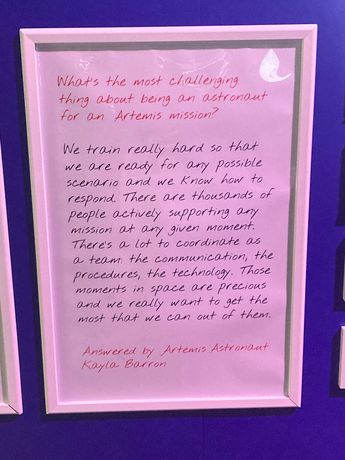 What's the most challenging
thing about being an astronaut
for an Artemis mission?
We train really hard so that
we are ready for any possible
scenario and we know how to
respond. There are thousands of
people actively supporting any
mission at any given moment.
There's a lot to coordinate as
a team: the communication, the
procedures, the technology. Those
moments in space are precious
and we really want to get the
most that we can out of them.
Answered by Artemis Astronaut
Kayla Barron